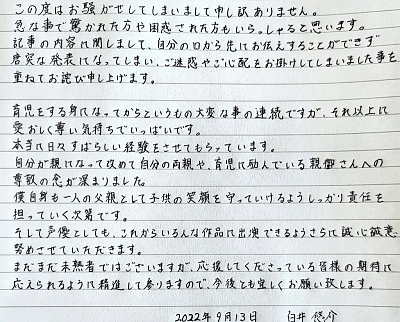 この度はお騒がせしてしまいまして申し訳ありません。
急な事で驚かれた方や困惑された方もいらっしゃると思います。
記事の内容に関しまして、自分の口から先にお伝えすることができず
唐突な発表になってしまい、ご迷惑やご心配をお掛けしてしまいました事を
重ねてお詫び申し上げます。
育児をする身になってからというもの大変な事の連続ですが、それ以上に
愛おしく尊い気持ちでいっぱいです。
本当に日々すばらしい経験をさせてもらっています。
自分が親になって改めて自分の両親や、育児に励んでいる親御さんへの
尊敬の念が深まりました。
僕自身も一人の父親として子供の笑顔を守っていけるようしっかり責任を
担っていく次第です。
そして声優としても、これからいろんな作品に出演できるようさらに誠心誠意
努めさせていただきます。
まだまだ未熟者ではございますが、応援してくださっている皆様の期待に
応えられるように精進して参りますので、今後とも宜しくお願い致します。
2022年9月13日 白井悠介